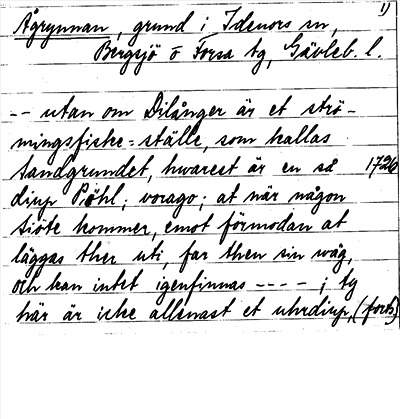 1)
Ågrynnan, grund i Idenors sn,
Bergsjö o Forsa tg, Gävleb. l.
-- utan om Dilånger är et strö-
mingsfiske-ställe, som kallas
Sandgrundet, hwarest är en så 1726
diup Pöhl; vorago; at när någon
siöte kommer, emot förmodan at
läggas ther uti, far then sin wäg,
och kan intet igenfinnas ---- ; ty
här är icke allenast et uhrdiup, (forts)